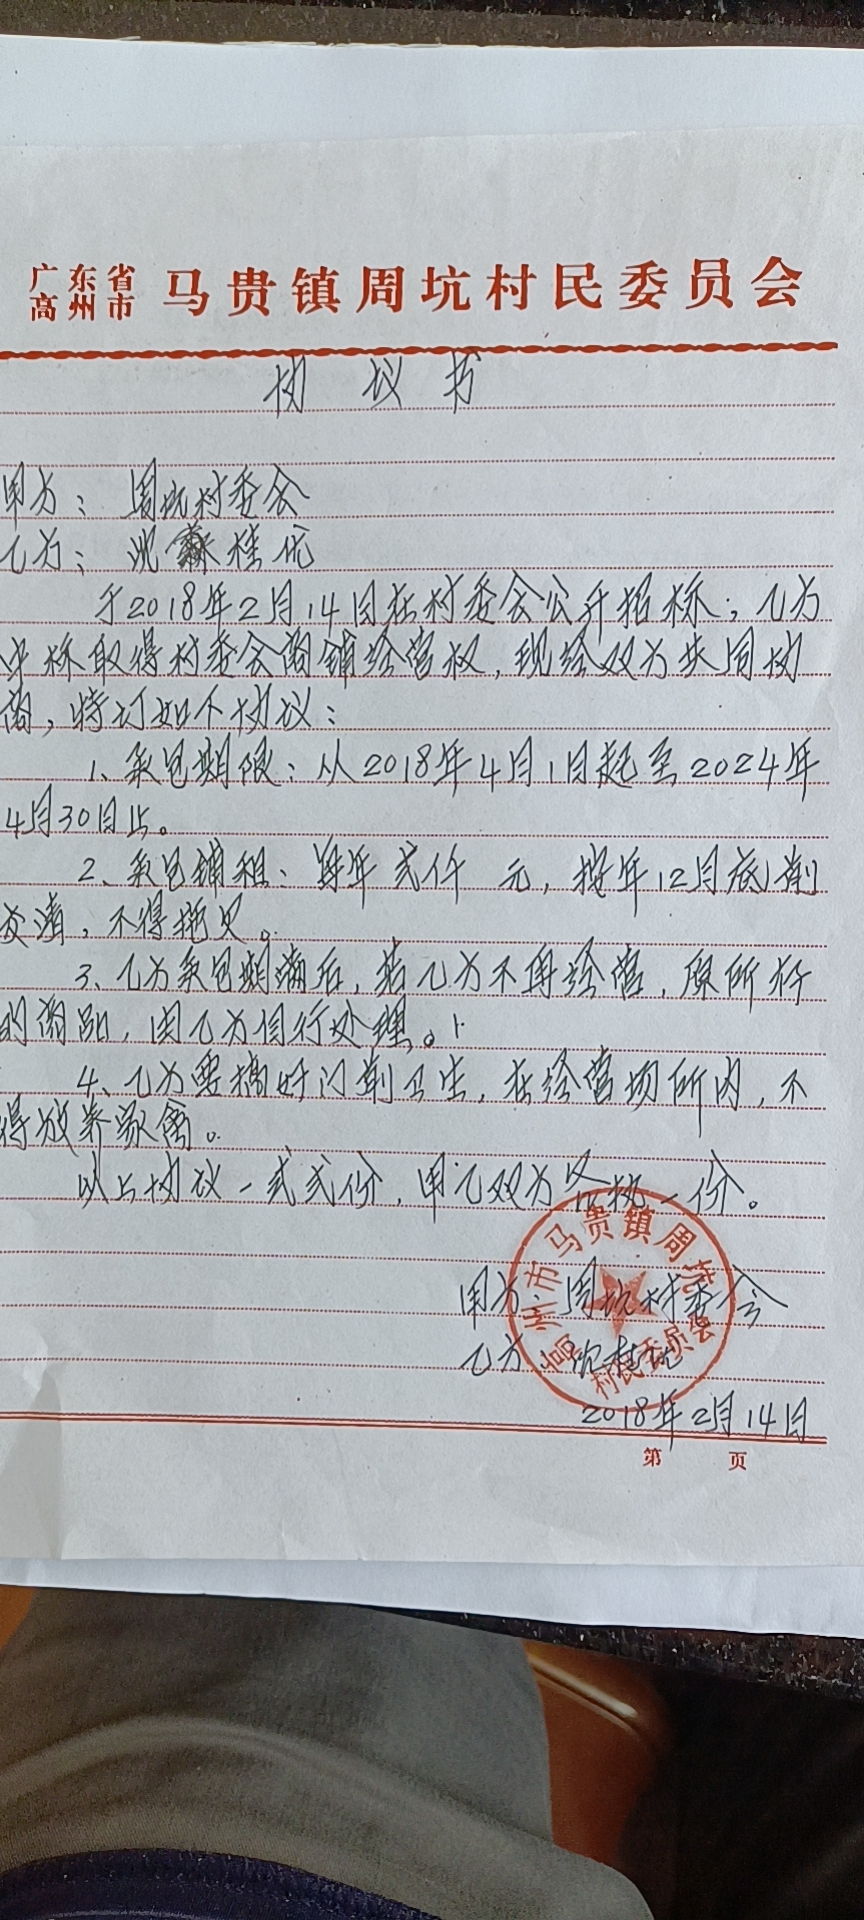 广东省
高州市 马贵镇周坑村民委员会
协议书
甲方：周坑村委会
乙方：沈桂优
于2018年2月14日在村委会公开招标；乙方
中标取得村委会商铺经营权，现经双方共同协
商，特订如下协议：
1、承包期限：从2018年4月1日起至2024年
4月30日止。
2、承包铺租：每年弍仟 元，按年12月底前
交清，不得拖欠。
3、乙方承包期满后，若乙方不再经营，原所存
的商品，由乙方自行处理。
4、乙方要搞好门前卫生，在经营场所内，不
得放养家禽。
以上协议一式弍份，甲乙双方各执一份。
甲方：周坑村委会
乙方：沈桂优
2018年2月14日
高州市马贵镇周坑
村民委员会
第 页